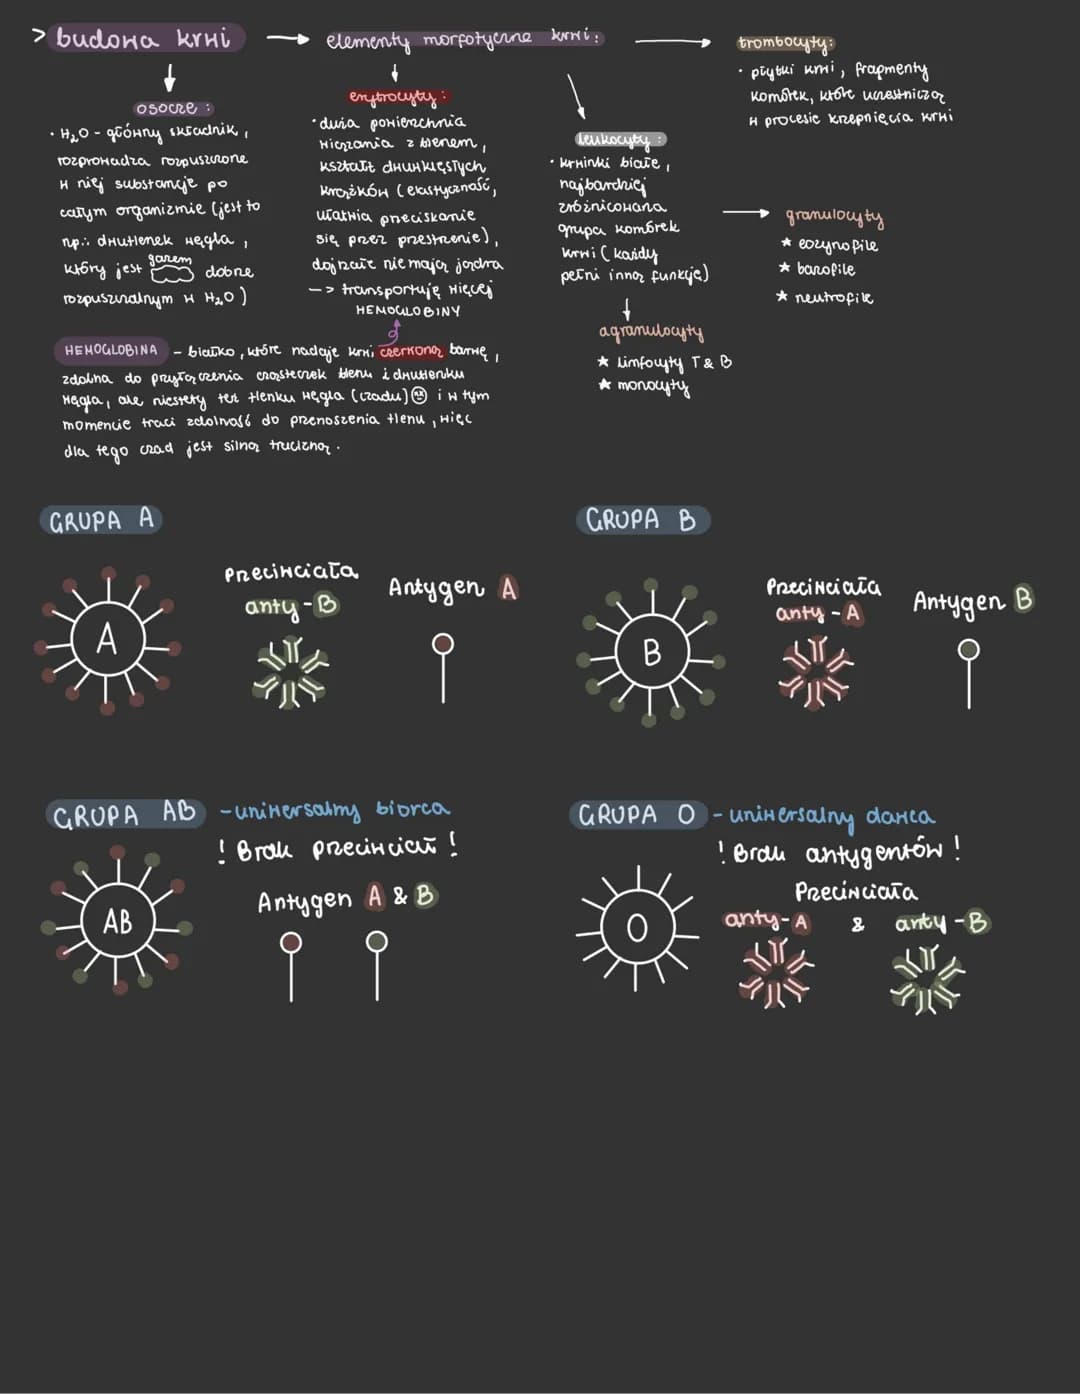 > budowa krwi
elementy morfotyczne krwi:
trombocyty:
• płytki krwi, fragmenty
komórek, które uczestniczą
w procesie krzepnięcia krwi
osocze:
• H₂O - główny składnik,
rozprowadza rozpuszczone
w niej substancje po
całym organizmie (jest to
np.: dwutlenek węgla,
który jest gazem dobrze
rozpuszczalnym w H₂O)
erytrocyty:
• duża powierzchnia
wiązania z tlenem,
kształt dwuklęsłych
krążków (elastyczność,
ułatwia przeciskanie
się przez przestrzenie),
dojrzałe nie mają jądra
—> transportuję więcej
HEMOGLOBINY
leukocyty:
• krwinki białe,
najbardziej
zróżnicowana
grupa komórek
krwi (każdy
pełni inną funkcję)
granulocyty
★ eozynofile
★ bazofile
★ neutrofile
agranulocyty
★ limfocyty T & B
★ monocyty
HEMOGLOBINA - białko, które nadaje krwi czerwoną barwę,
zdolna do przyłączenia cząsteczek tlenu i dwutlenku
węgla, ale niestety też tlenku węgla (czadu) i w tym
momencie traci zdolność do przenoszenia tlenu, więc
dla tego czad jest silną trucizną.
GRUPA A
A
Przeciwciała
anty-B
Antygen A
GRUPA B
B
Przeciwciała
anty-A
Antygen B
GRUPA AB - uniwersalny biorca
! Brak przeciwciał !
AB
Antygen A & B
GRUPA O - uniwersalny dawca
! Brak antygenów !
O
Przeciwciała
anty-A & anty-B